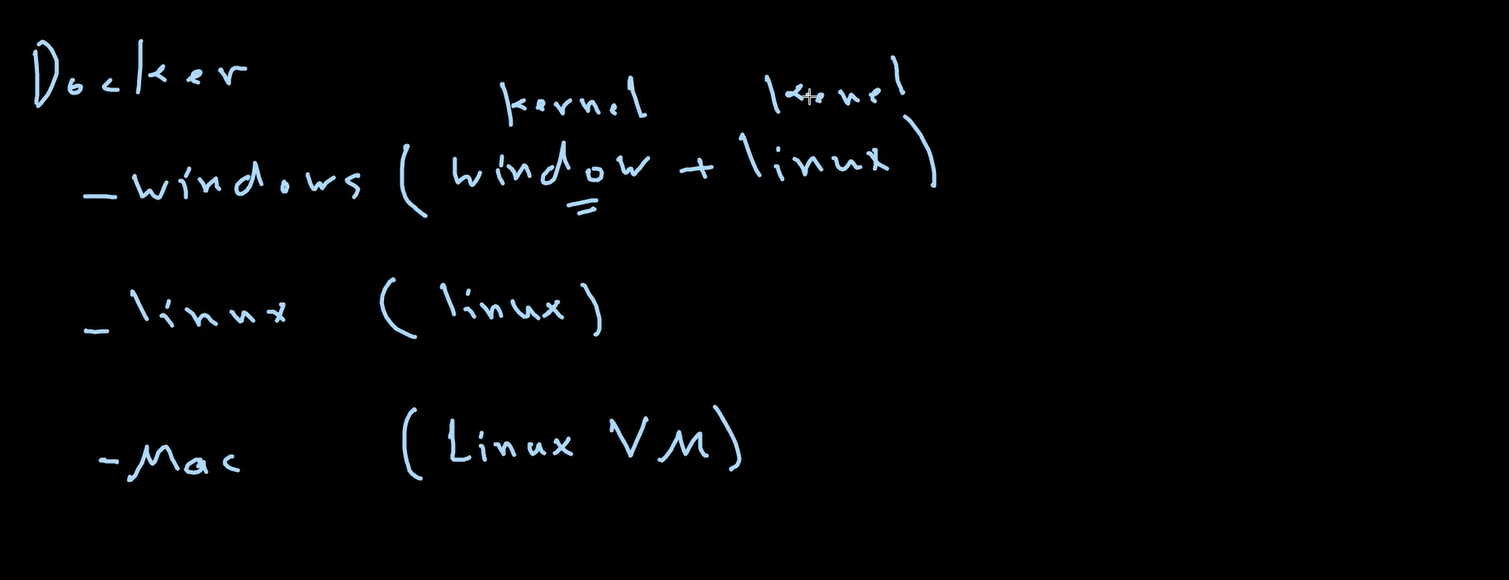 Docker
kernel kernel
- windows ( window + linux )
- linux ( linux )
- Mac ( Linux VM )